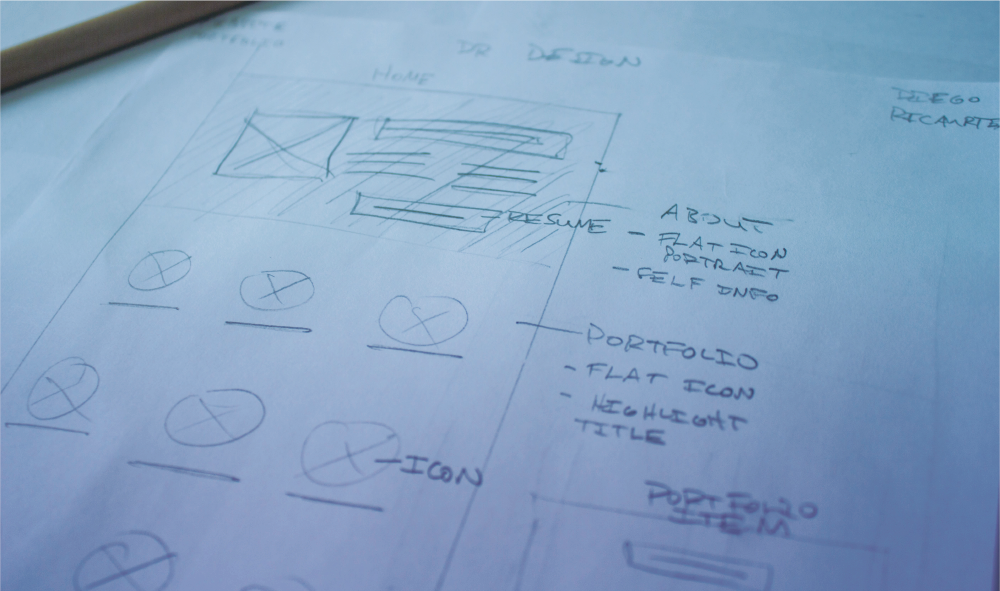 DR DESIGN
HOME
DIEGO
RICAURTE
RESUME
ABOUT
- FLAT ICON
PORTRAIT
- SELF INFO
PORTFOLIO
- FLAT ICON
- HIGHLIGHT
TITLE
ICON
PORTFOLIO
ITEM